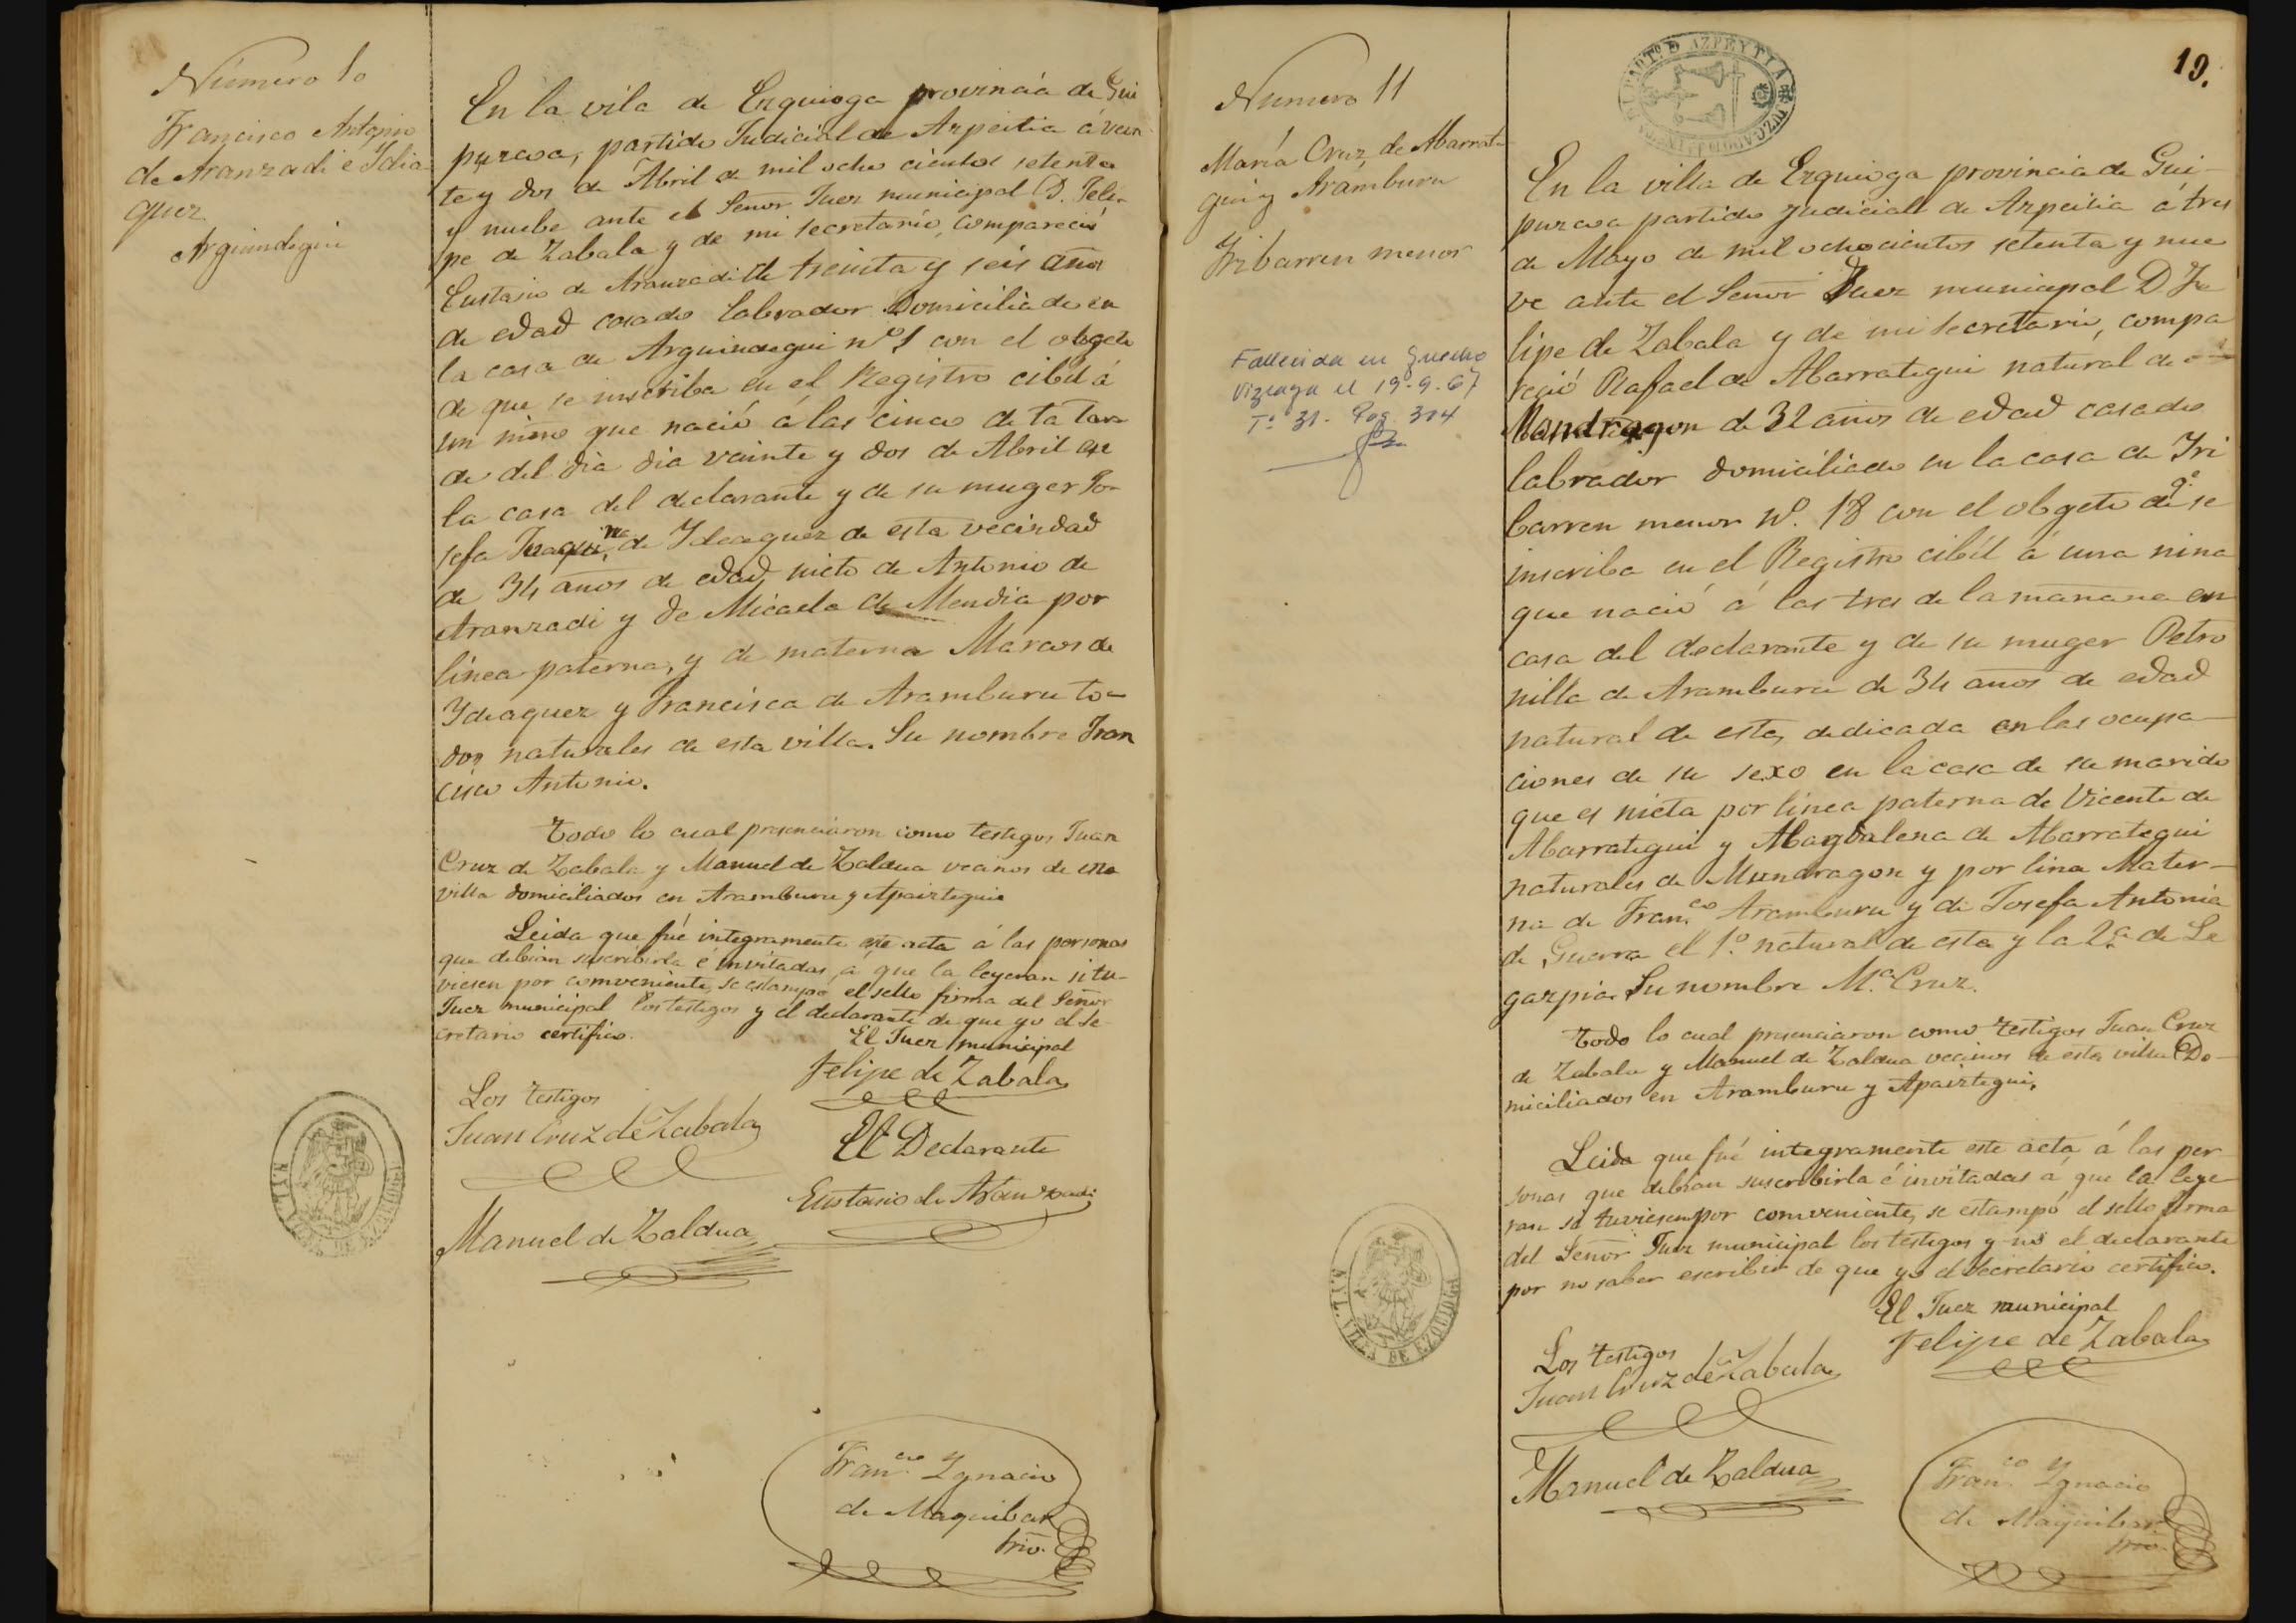 Número 10
Francisco Antonio
de Aranzadi e Ydia
quez
Arguindegui
En la vila de Ezquioga provincia de Gui
puzcoa, partido Judicial de Azpeitia á vein
te y dos de Abril de mil ocho cientos setenta
y nuebe ante el Señor Juez municipal D. Feli-
pe de Zabala y de mi secretario, compareció
Eustasio de Aranzadi de treinta y seis años
de edad casado labrador Domiciliado en
la casa de Arguindegui nº 1 con el obgeto
de que se inscriba en el Registro cibil á
un niño que nació á las cinco de la tar
de del dia dia vainte y dos de Abril en
la casa del declarante y de su muger Jo-
sefa Juaquina de Ydeaquez de esta vecindad
de 34 años de edad, nieto de Antonio de
Aranzadi y de Micaela de Mendia por
línea paterna, y de materna Marcos de
Ydeaquez y Francisca de Aramburu to-
dos naturales de esta villa. Su nombre Fran
cisco Antonio.
Todo lo cual presenciaron como testigos Juan
Cruz de Zabala y Manuel de Zaldua vecinos de esta
villa domiciliados en Aramburu y Apaiztegui
Leida que fué integramente este acta á las personas
que debian suscribirla é invitadas á que la leyeran si tu-
viesen por conveniente, se estampó el sello firma del Señor
Juez municipal los testigos y el declarante de que yo el Se-
cretario certifico.
El Juez municipal
Felipe de Zabala
Los testigos
Juan Cruz de Zabala
El Declarante
Eustasio de Aranzadi
Manuel de Zaldua
Fran.co Ygnacio
de Maquibar
Srio.
19.
Número 11
María Cruz de Abarrate-
gui y Arámburu
Yribarren menor
Fallecida en Guecho
Vizcaya el 19-9-67
Tº 31. Pag 304
En la villa de Ezquioga provincia de Gui-
puzcoa partido Judicial de Azpeitia á tres
de Mayo de mil ochocientos setenta y nue
ve ante el Señor Juez municipal D. Fe
lipe de Zabala y de mi secretario, compa
reció Rafael de Abarrategui natural de
Mondragon de 32 años de edad casado
labrador domiciliado en la casa de Yri
barren menor nº. 18 con el obgeto de q.e se
inscriba en el Registro cibil á una nina
que nació á las tres de la mañana en
casa del declarante y de su muger Petro
nilla de Aramburu de 34 años de edad
natural de esta, dedicada en las ocupa-
ciones de su sexo en la casa de su marido
que es nieta por línea paterna de Vicente de
Abarrategui y Magdalena de Abarrategui
naturales de Mondragon y por lina Mater-
na de Fran.co Aramburu y de Josefa Antonia
de Guerra el 1.º natural de esta y la 2.ª de Le
gazpia. Su nombre M.ª Cruz.
Todo lo cual presenciaron como testigos Juan Cruz
de Zabala y Manuel de Zaldua vecinos de esta villa Do-
miciliados en Aramburu y Apaiztegui.
Leida que fué integramente este acta á las per
sonas que debian suscribirla é invitadas á que la leye
ran si tuviesen por conveniente, se estampó el sello firma
del Señor Juez municipal los testigos y no el declarante
por no saber escribir de que yo el Secretario certifico.
El Juez municipal
Felipe de Zabala
Los testigos
Juan Cruz de Zabala
Manuel de Zaldua
Fran.co Ygnacio
de Maquibar
Srio.